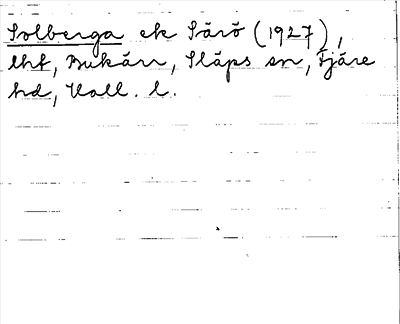 Solberga ek Särö (1927),
lhf, Bukärr, Släps sn, Fjäre
hd, Hall. l.